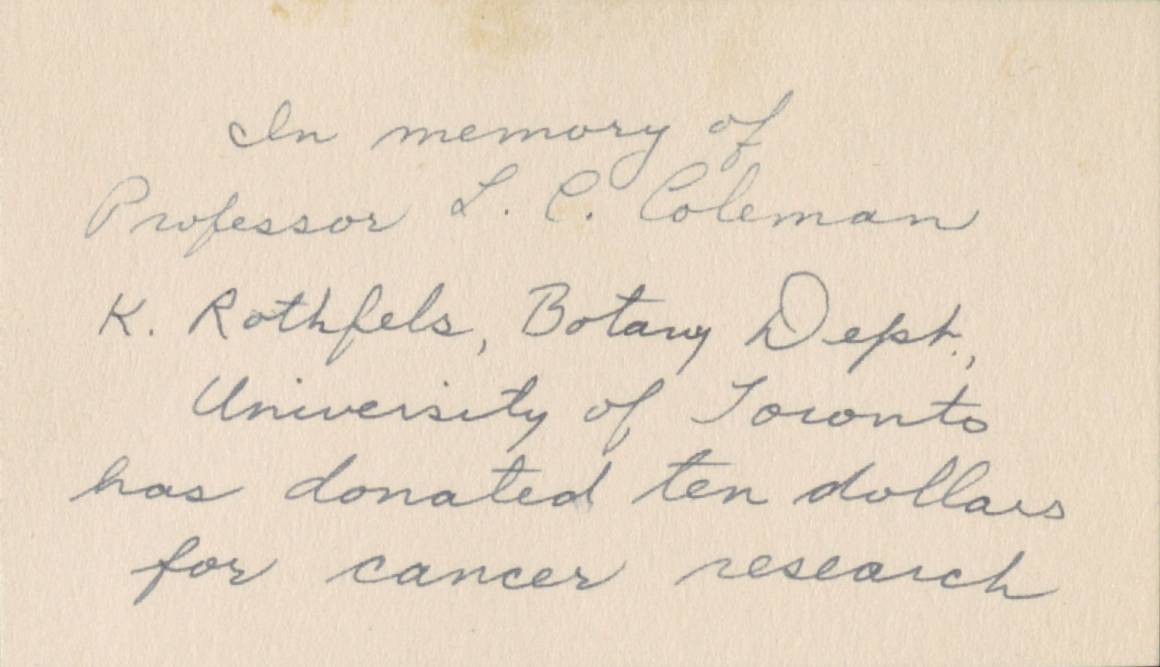 In memory of
Professor L. C. Coleman
K. Rothfels, Botany Dept.,
University of Toronto
has donated ten dollars
for cancer research